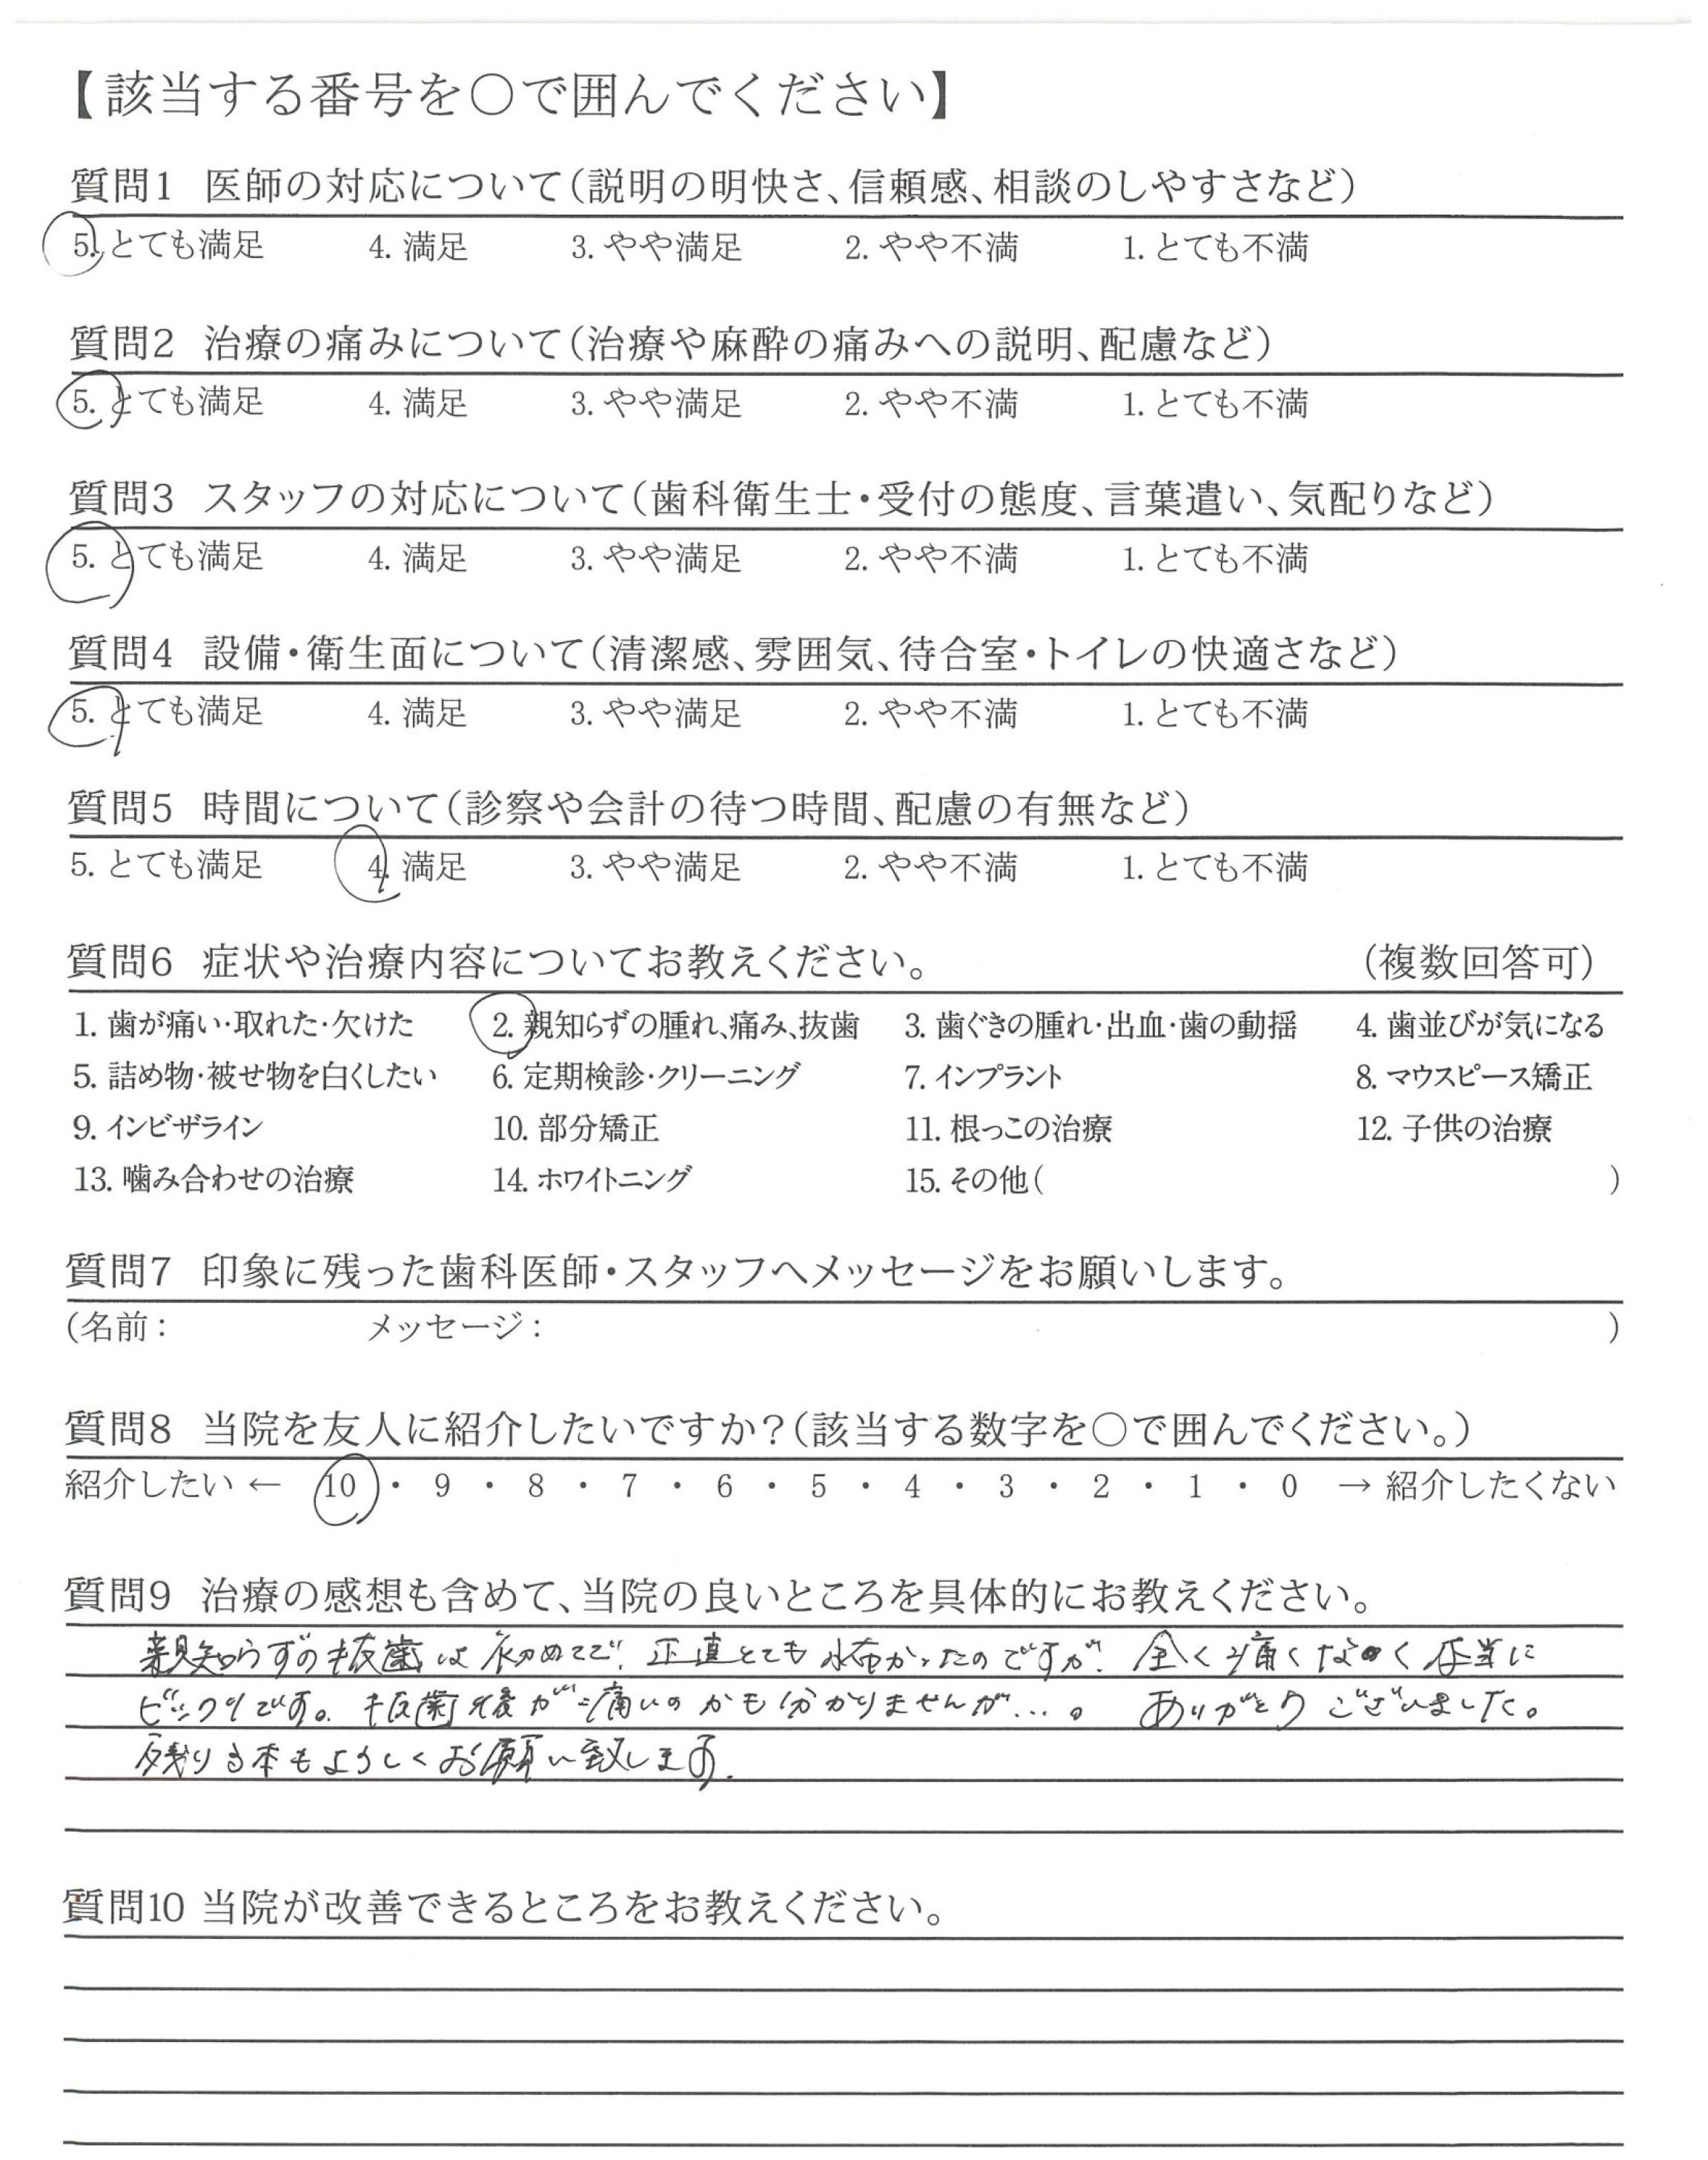 【該当する番号を○で囲んでください】
質問1 医師の対応について(説明の明快さ、信頼感、相談のしやすさなど)
5. とても満足 4. 満足 3. やや満足 2. やや不満 1. とても不満
質問2 治療の痛みについて(治療や麻酔の痛みへの説明、配慮など)
5. とても満足 4. 満足 3. やや満足 2. やや不満 1. とても不満
質問3 スタッフの対応について(歯科衛生士・受付の態度、言葉遣い、気配りなど)
5. とても満足 4. 満足 3. やや満足 2. やや不満 1. とても不満
質問4 設備・衛生面について(清潔感、雰囲気、待合室・トイレの快適さなど)
5. とても満足 4. 満足 3. やや満足 2. やや不満 1. とても不満
質問5 時間について(診察や会計の待つ時間、配慮の有無など)
5. とても満足 4. 満足 3. やや満足 2. やや不満 1. とても不満
質問6 症状や治療内容についてお教えください。 (複数回答可)
1. 歯が痛い・取れた・欠けた 2. 親知らずの腫れ、痛み、抜歯 3. 歯ぐきの腫れ・出血・歯の動揺 4. 歯並びが気になる
5. 詰め物・被せ物を白くしたい 6. 定期検診・クリーニング 7. インプラント 8. マウスピース矯正
9. インビザライン 10. 部分矯正 11. 根っこの治療 12. 子供の治療
13. 噛み合わせの治療 14. ホワイトニング 15. その他( )
質問7 印象に残った歯科医師・スタッフへメッセージをお願いします。
(名前: メッセージ: )
質問8 当院を友人に紹介したいですか?(該当する数字を○で囲んでください。)
紹介したい ← 10 ・ 9 ・ 8 ・ 7 ・ 6 ・ 5 ・ 4 ・ 3 ・ 2 ・ 1 ・ 0 → 紹介したくない
質問9 治療の感想も含めて、当院の良いところを具体的にお教えください。
親知らずの抜歯は初めてで、正直とても怖かったのですが、全く痛くなく本当に
ビックリです。抜歯後が痛いのかも分かりませんが…。 ありがとうございました。
残り3本もよろしくお願い致します。
質問10 当院が改善できるところをお教えください。